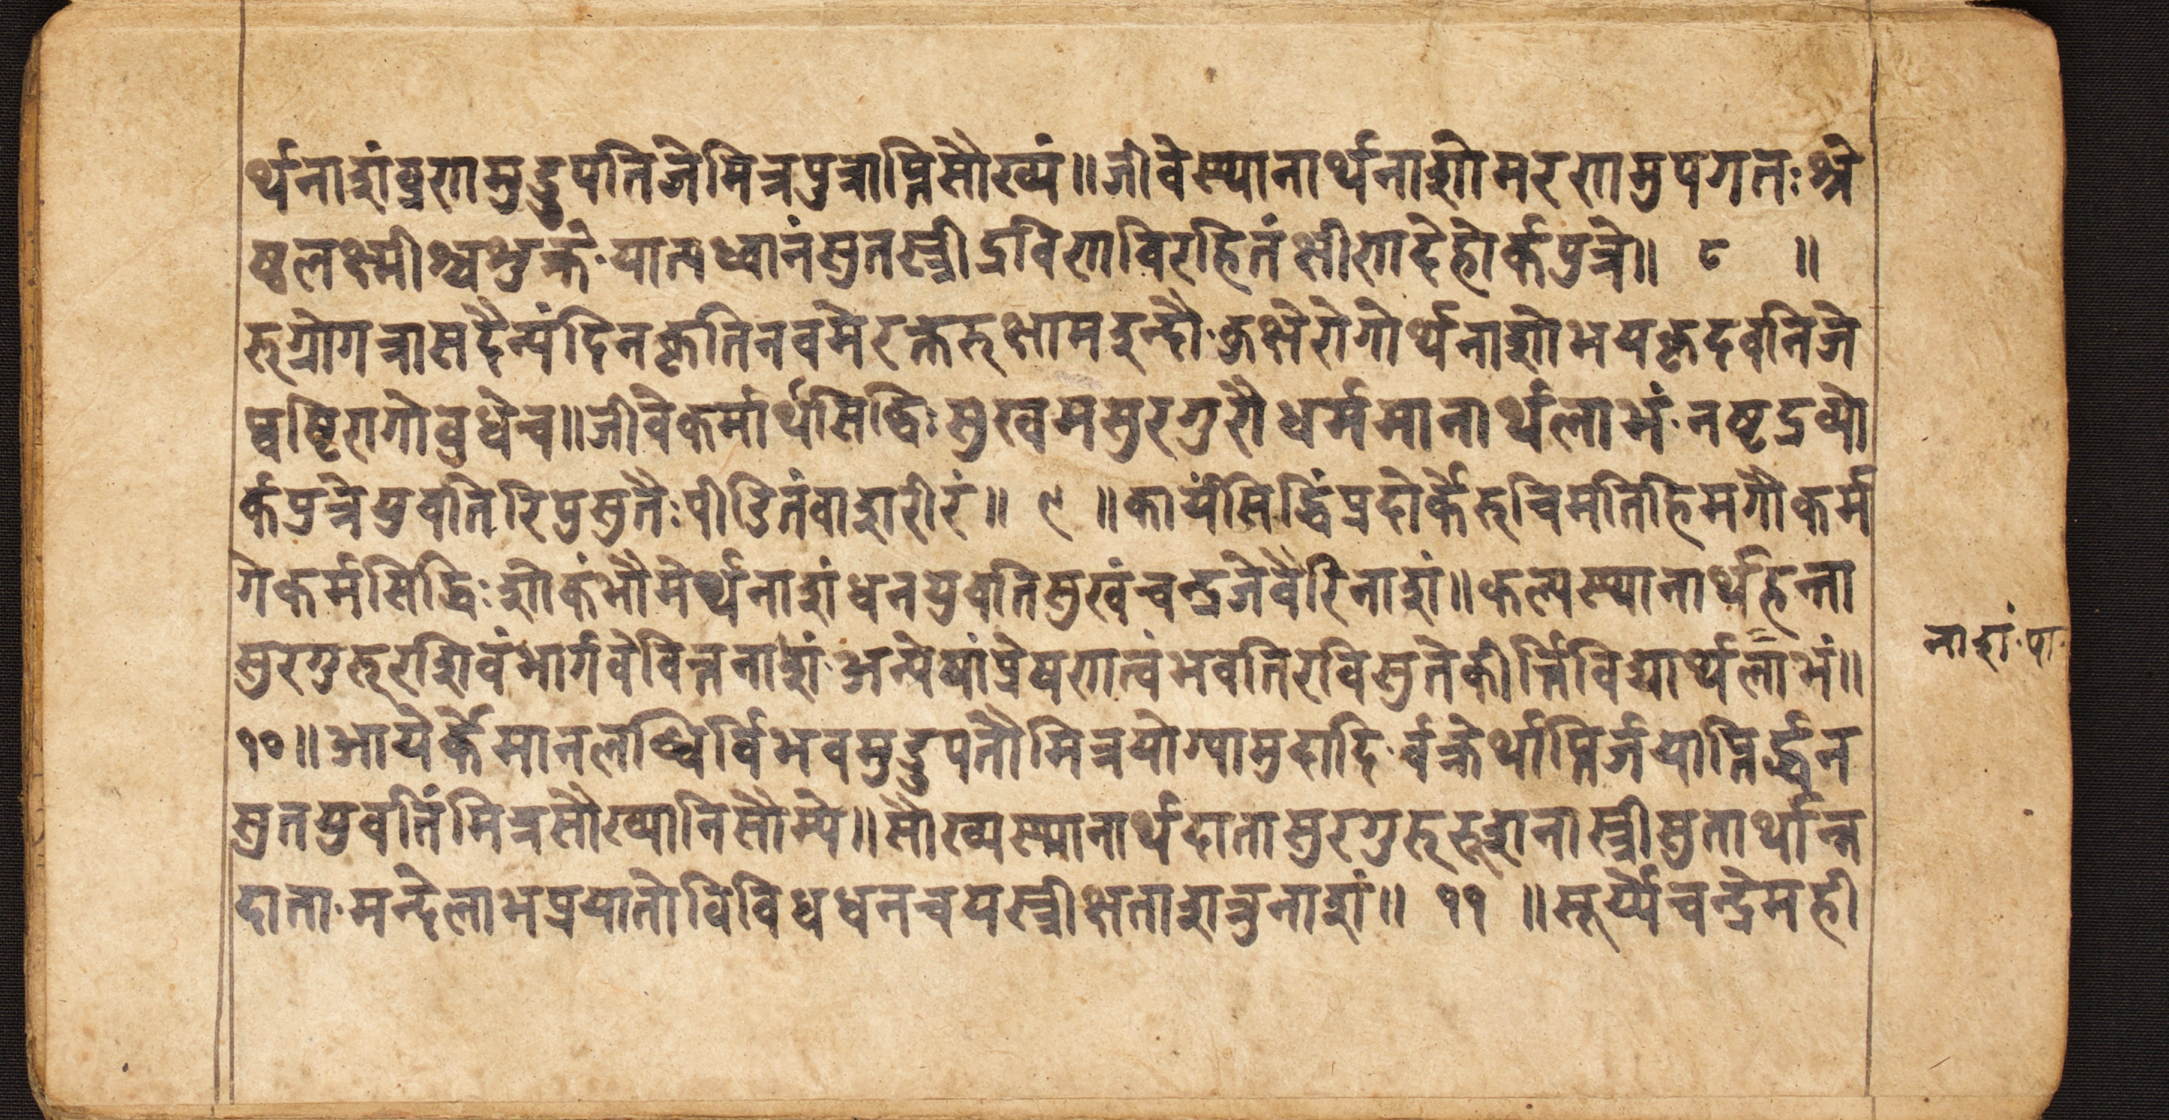 र्थनाशंव्रणमुडुपतिजेमित्रपुत्राप्तिसौख्यं॥जीवेस्थानार्थनाशोमरणमुपगतःश्रे
ष्ठलक्ष्मीश्चभुक्तेयात्यध्वानंसुतस्त्रीद्रविणविरहितंक्षीणदेहोर्कपुत्रे॥ ८ ॥
रुग्रोगत्रासदैन्यंदिनकृतिनवमेरक्तरुक्षामइन्दौकुक्षेरोगोर्थनाशोभयकृदवनिजे
जीवेकर्मार्थसिद्धिःसुखमसुरगुरौधर्ममानार्थलाभंनष्टद्रव्यो
र्कपुत्रेयुवतिरिपुसुतैःपीडितंवाशरीरं॥ ९ ॥कार्यंसिद्धिंप्रदोर्केरुचिमतिहिमगौकर्म
गेकर्मसिद्धिःशोकंभौमेर्थनाशंधनयुवतिसुखंचन्द्रजेवैरिनाशं॥कल्पस्थानार्थहन्ता
सुरगुरुरशिवंभार्गवेवित्तनाशंअन्येषांप्रेषणत्वंभवतिरविसुतेकीर्त्तिविद्यार्थलाभं॥
१०॥आयेर्केमानलब्धिर्विभवमुडुपतौमित्रयोग्यामुदादिवंक्रेर्थाप्तिर्जयाप्तिर्द्धन
सुतयुवतिंमित्रसौख्यानिसौम्ये॥सौख्यस्थानार्थदातासुरगुरुरुशनास्त्रीसुतार्थान्न
दातामन्देलाभप्रयातोविविधधनचयस्त्रीक्षताशत्रुनाशं॥ ११ ॥सूर्य्येचन्द्रेमही
नाशंपा